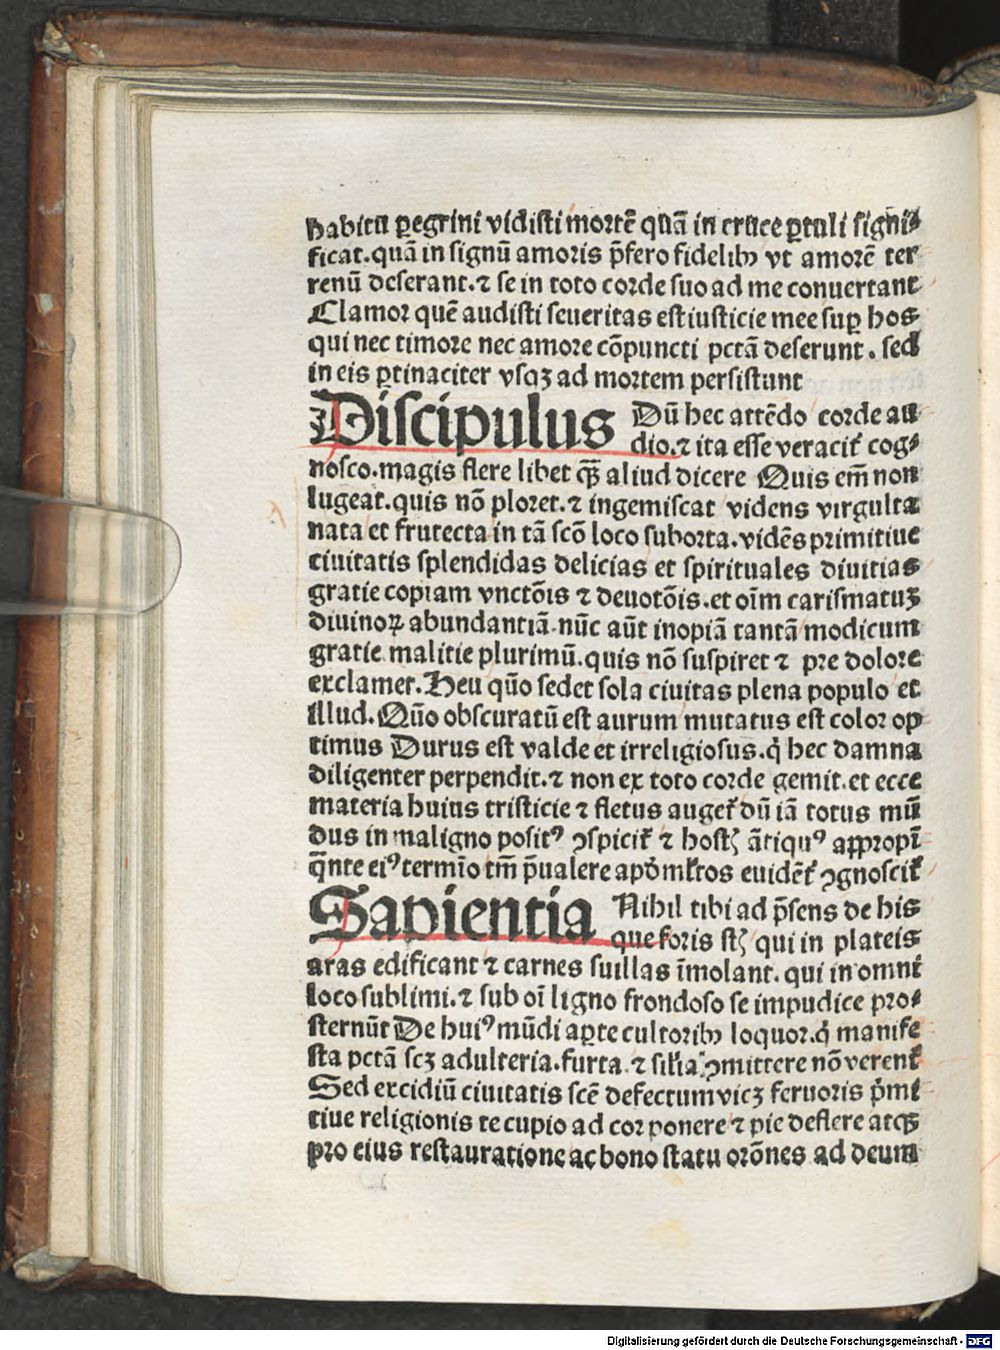 habitu ꝑegrini vidisti mortē quā in cruce ꝑtuli signi⸗
ficat. quā in signū amoris p̄fero fidelibꝰ vt amorē ter
renū deserant. ⁊ se in toto corde suo ad me conuertant
Clamor quē audisti seueritas est iusticie mee suꝑ hos
qui nec timore nec amore cōpuncti pctā deserunt. sed
in eis ꝑtinaciter vsqꝫ ad mortem persistunt
Discipulus Dū hec attēdo corde au
dio. ⁊ ita esse veracit̉ cog⸗
nosco. magis flere libet qꝫ̄ aliud dicere Quis em̄ non
lugeat. quis nō ploret. ⁊ ingemiscat videns virgulta
nata et frutecta in tā scō loco suborta. vidēs primitiue
ciuitatis splendidas delicias et spirituales diuitias
gratie copiam vnctōis ⁊ deuotōis. et oīm carismatuꝫ
diuinoꝝ abundantiā. nūc aūt inopiā tantā modicum
gratie malitie plurimū. quis nō suspiret ⁊ pre dolore
exclamet. Heu quō sedet sola ciuitas plena populo et
illud. Quō obscuratū est aurum mutatus est color op
timus Durus est valde et irreligiosus. q̇ hec damna
diligenter perpendit. ⁊ non ex toto corde gemit. et ecce
materia huius tristicie ⁊ fletus auget̉ dū iā totus mū
dus in maligno positꝰ ꝯspicit̉ ⁊ hostꝭ ātiquꝰ appropī
q̄nte eiꝰ termīo tm̄ p̄ualere ap̄d ml̉tos euidēt̉ ꝯgnoscit̉
Sapientia Nihil tibi ad p̄sens de his
que foris stꝭ qui in plateis
aras edificant ⁊ carnes suillas īmolant. qui in omni
loco sublimi. ⁊ sub oī ligno frondoso se impudice pro⸗
sternūt De huiꝰ mūdi aꝑte cultoribꝰ loquor. q̇ manife
sta pctā scꝫ adulteria. furta. ⁊ sil̉ia ꝯmittere nō verent̉
Sed excidiū ciuitatis scē defectum vicꝫ feruoris p̄mi
tiue religionis te cupio ad cor ponere ⁊ pie deflere atqꝫ
pro eius restauratione ac bono statu orōnes ad deum
Digitalisierung gefördert durch die Deutsche Forschungsgemeinschaft - DFG